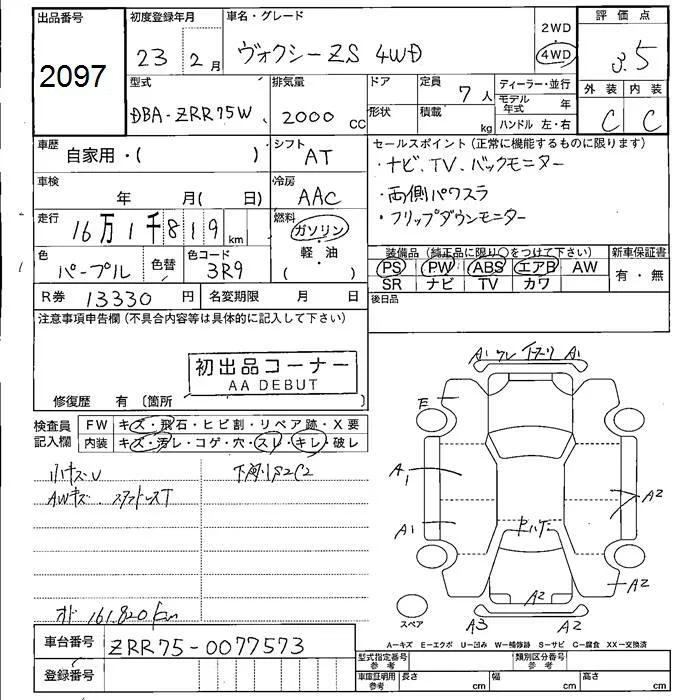 出品番号
2097
初度登録年月
23 2月
車名・グレード
ヴォクシーZS 4WD
2WD
4WD
評価点
3.5
外装 内装
C C
型式
DBA-ZRR75W
排気量
2000 CC
ドア
形状
定員
7人
積載
kg
ディーラー・並行
モデル年式 年
ハンドル 左・右
車歴
自家用・( )
シフト
AT
セールスポイント(正常に機能するものに限ります)
・ナビ、TV、バックモニター
・両側パワスラ
・フリップダウンモニター
車検
年 月( 日)
冷房
AAC
走行
16万1千819km
燃料
ガソリン
・
軽・油
( )
色
パープル
色替
色コード
3R9
装備品(純正品に限り○をつけて下さい)
PS PW ABS エアB AW
SR ナビ TV カワ
新車保証書
有・無
R券 13330円
名変期限 月 日
後日品
注意事項申告欄(不具合内容等は具体的に記入して下さい)
初出品コーナー
AA DEBUT
修復歴 有(箇所
検査員記入欄
FW キズ・飛石・ヒビ割・リペア跡・X要
内装 キズ・汚レ・コゲ・穴・スレ・キレ・破レ
小キズU
AWキズ.スタッドレスT
下廻りS2C2
オド 161.820km
A1 ワレ A1
E
A1
A1
A2
A2
A2
A3 A2
スペア
A−キズ E−エクボ U−凹み W−補修跡 S−サビ C−腐食 XX−交換済
車台番号
ZRR75-0077573
登録番号
型式指定番号
参考
類別区分番号
参考
車庫証明用
参考
長さ cm
幅 cm
高さ cm